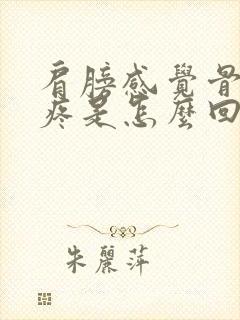 肩膀感覺骨
疼是怎麼回
朱麗萍